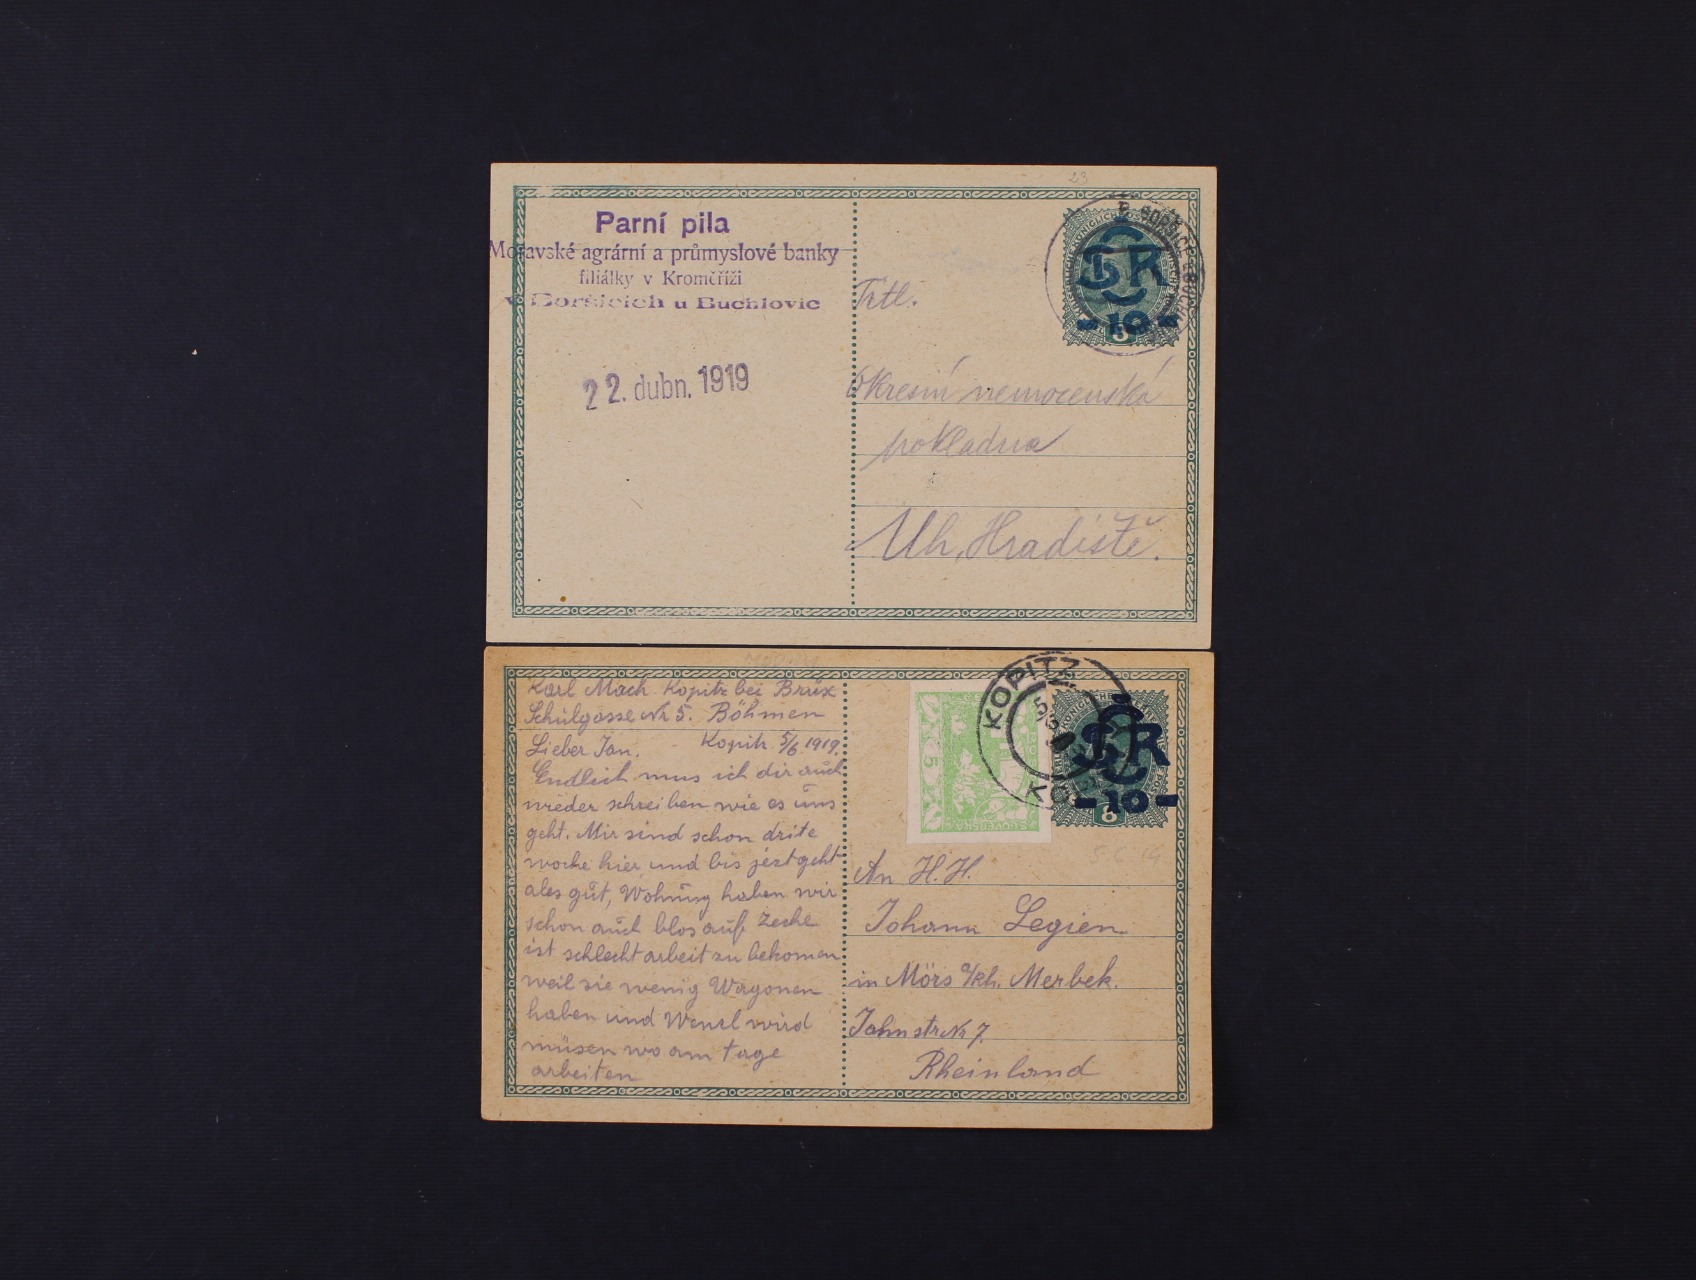 23
Parní pila
Moravské agrární a průmyslové banky
filiálky v Kroměříži
v Boršicích u Buchlovic
22. dubn. 1919
ČSR
-10-
8
Titl.
Okresní nemocenská
pokladna
Uh. Hradiště.
Karl Mach Kopitz bei Brüx
Schulgasse Nr 5. Böhmen
Kopitz 5/6 1919.
Lieber Jan.
Endlich mus ich dir auch
wieder schreiben wie es uns
geht. Mir sind schon drite
woche hier, und bis jezt geht
ales gut, Wohnung haben wir
schon auch blos auf Zeche
ist schlecht arbeit zu bekomen
weil sie wenig Wagonen
haben und Wenzl wird
müsen wo am tage
arbeiten
KOPITZ
5
ČSR
-10-
8
An H. H.
Johann Legien
in Mörs a/Rh. Merbek.
Jahnstr Nr 7.
Rheinland